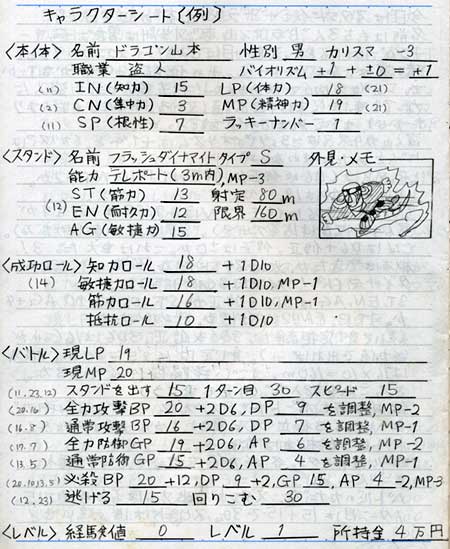 キャラクターシート〔例〕
〈本体〉 名前 ドラゴン山本 性別 男 カリスマ -3
職業 盗人 バイオリズム +1 + ±0 = +1
(11) IN(知力) 15 LP(体力) 18 (21)
(2) CN(集中力) 3 MP(精神力) 19 (21)
(11) SP(根性) 7 ラッキーナンバー 1
〈スタンド〉 名前 フラッシュダイナマイトタイプS 外見・メモ
能力 テレポート(3m内) MP-3
ST(筋力) 13 射定 80 m
(12) EN(耐久力) 12 限界 160 m
AG(敏捷力) 15
〈成功ロール〉 知力ロール 18 +1D10
(14) 敏捷力ロール 18 +1D10,MP-1
筋力ロール 16 +1D10,MP-1
抵抗ロール 10 +1D10
〈バトル〉 現LP 19
現MP 20
(11,23,12) スタンドを出す 15 1ターン目 30 スピード 15
(20.16) 全力攻撃BP 20 +2D6, DP 9 を調整, MP-2
(16.8) 通常攻撃BP 16 +2D6, DP 7 を調整, MP-1
(17.7) 全力防御GP 19 +2D6, AP 6 を調整, MP-2
(13.5) 通常防御GP 15 +2D6, AP 4 を調整, MP-1
(20.10,13.5) 必殺BP 20 +12, DP 9 +2, GP 15, AP 4 -2, MP-3
(12.23) 逃げる 15 回りこむ 30
〈レベル〉 経験値 0 レベル 1 所持金 4万円